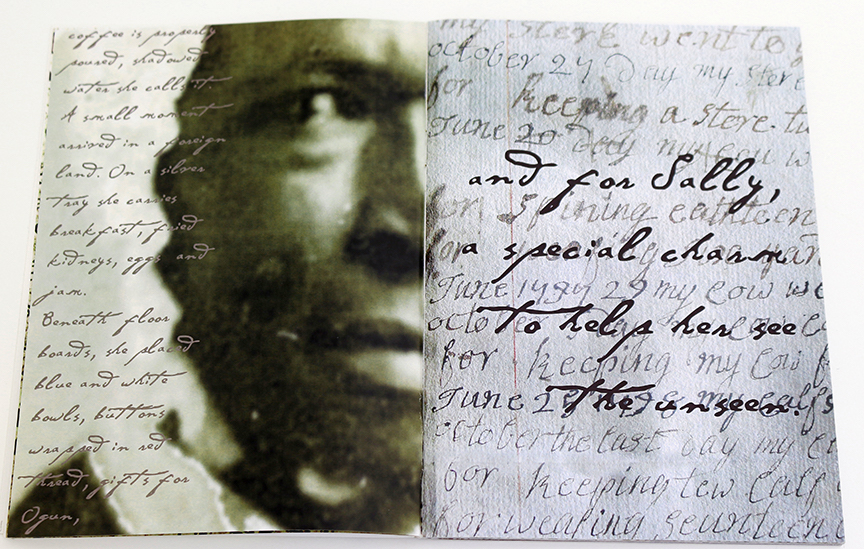 coffee is properly
poured, shadowed
water she calls it.
A small moment
arrived in a foreign
land. On a silver
tray she carries
breakfast, fried
kidneys, eggs and
jam.
Beneath floor
boards, she placed
blue and white
bowls, buttons
wrapped in red
thread, gifts for
Ogun,
my store went to
october 29 day my store
for keeping a store
June 20 day my cow w
and for Sally,
for spining eathteen
a special charm
June 29 my cow we
octo
to help her see
for keeping my cow f
June 2
the unseen.
october the last day my c
for keeping tew calf
for weafing seunteen